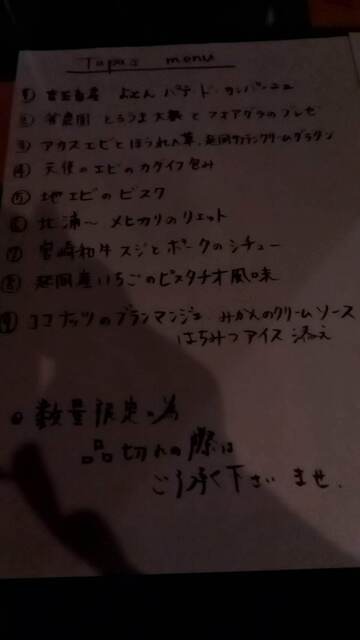 Tapas menu
① 産 パテ ド カンパーニュ
② とろうま大根とフォアグラのブレゼ
③ アカエビとほうれん草、延岡 クリームグラタン
④ 天使のエビのカダイフ包み
⑤ 地エビのビスク
⑥ 北浦〜メヒカリのリエット
⑦ 宮崎和牛スジとポークのシチュー
⑧ 延岡産いちごのピスタチオ風味
⑨ ココナッツのブランマンジェ みかんのクリームソース
はちみつアイス添え
数量限定の為
品切れの際は
ご了承下さいませ.